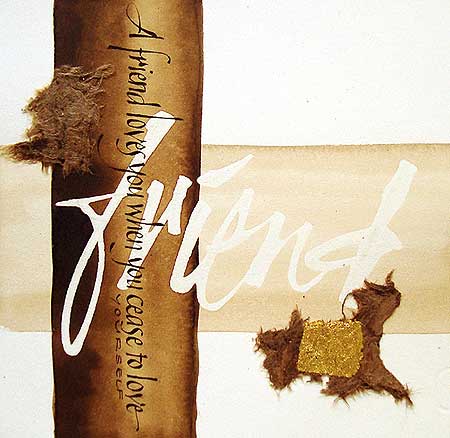 A friend loves you when you cease to love
YOURSELF
friend